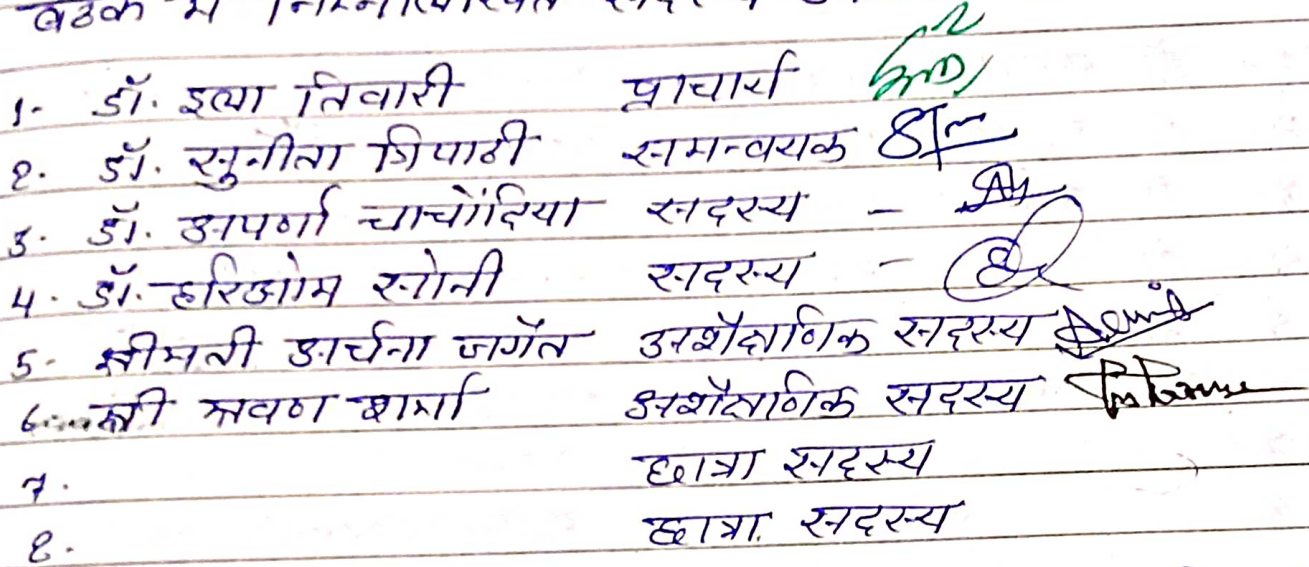 बैठक में निम्नलिखित सदस्य
1. डॉ. इला तिवारी प्राचार्य
2. डॉ. सुनीता त्रिपाठी समन्वयक
3. डॉ. अपर्णा चाचोंदिया सदस्य -
4. डॉ. हरिओम सोनी सदस्य -
5. श्रीमती अर्चना जगैत अशैक्षणिक सदस्य
6. श्री श्रवण शर्मा अशैक्षणिक सदस्य
7. छात्रा सदस्य
8. छात्रा. सदस्य